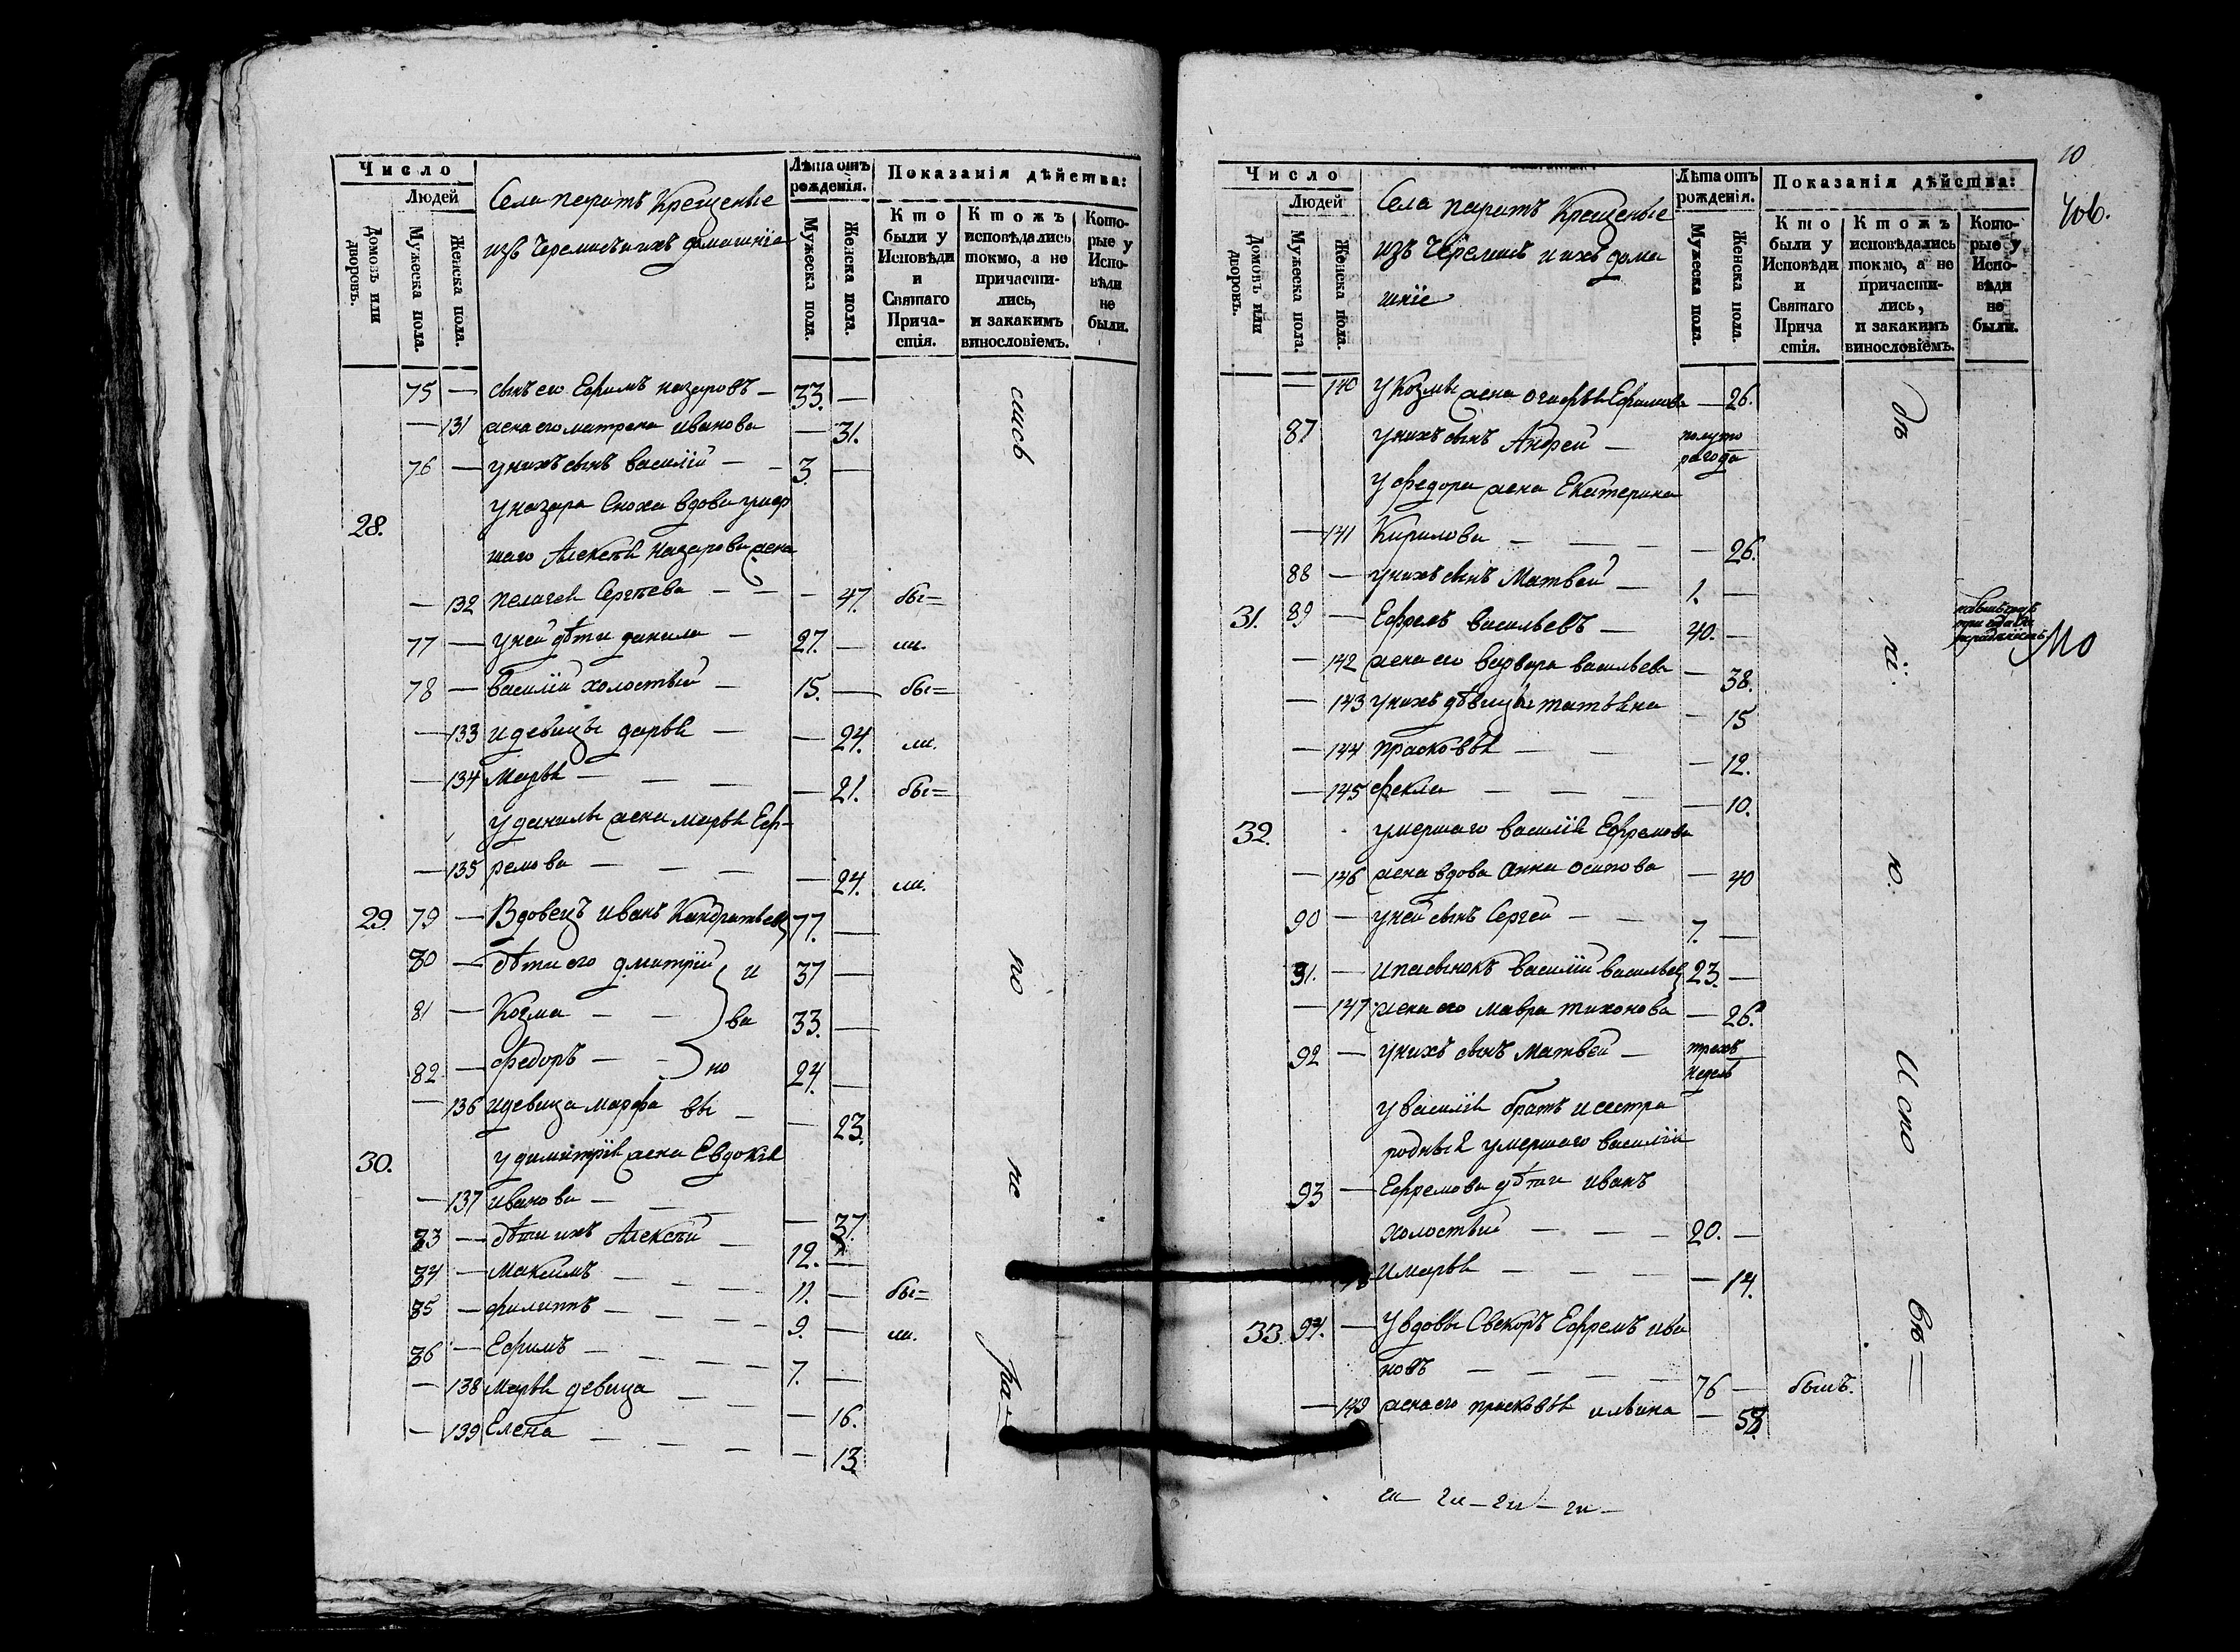 Число
Людей
Домовъ или дворовъ.
Мужеска пола.
Женска пола.
Села паратъ Крещеные
изъ Черемисъ и ихъ домашнiе
Лѣта отъ рожденiя.
Мужеска пола.
Женска пола.
Показанiя дѣйства:
Кто были у Исповѣди и Святаго Причастiя.
Ктожъ исповѣдались токмо, а не причастились, и закакимъ винословiемъ.
Которые у Исповѣди не были.
75 — сынъ его Ефимъ назаровъ — 33. —
— 131 жена его матрена иванова — 31.
76 — унихъ сынъ василiй — 3 —
28. у назара сноха вдова умер
шаго Алексѣя Назарова жена
— 132 пелагея Сергѣева — — 47. бы=
77 — уней дѣти данила — 27. — ли.
78 — василiй холостый — 15. — бы=
— 133 и девицы дарья — — 24. ли.
— 134 Марья — — — 21. бы=
у данилы жена марья Еф-
— 135 ремова — — — 24. ли.
29. 79 — Вдовецъ иванъ Кандратьевъ 77. —
80 — дѣти его дмитрiй и 37 —
81 — Козма — — ва 33. —
82 — федоръ — — но 24. —
— 136 и девица марфа вы — — 23.
30. у димитрiя жена Евдокiя
— 137 иванова — — — 37.
83 — дѣти ихъ Алексѣй — 12. —
84 — максимъ — — 11. — бы=
85 — филиппъ — — 9. — ли.
86 — Ефимъ — — 7. —
— 138 марья девица — — 16.
— 139 Елена — — — 13.
сись
по
не
ра—
10
406.
Число
Людей
Домовъ или дворовъ.
Мужеска пола.
Женска пола.
Села паратъ Крещеные
изъ Черемисъ и ихъ дома
шнiе
Лѣта отъ рожденiя.
Мужеска пола.
Женска пола.
Показанiя дѣйства:
Кто были у Исповѣди и Святаго Прича стiя.
Ктожъ исповѣдались токмо, а не причастились, и закакимъ винословiемъ.
Которые у Исповѣди не были.
— 140 у Козмы жена Огафья Ефимова — 26.
87 унихъ сынъ Андрей — полуто
рагода
у федора жена Екатерина
— 141 Кирилова — — — 26.
88 — унихъ сынъ Матвей — 1. —
31. 89 — Ефремъ васильевъ — 40. —
— 142 жена его варвара васильева — 38.
— 143 унихъ дѣвицы татьяна — 15
— 144 прасковья — — — 12.
— 145 фекла — — — 10.
32. умершаго василiя Ефремова
— 146 жена вдова анна осипова — 40
90 — уней сынъ Сергей — — 7. —
91. — и пасынокъ василiй васильевъ 23. —
— 147 жена его мавра тихонова — 26.
92 — унихъ сынъ матвей — трехъ
недель
у василiя братъ и сестра
родныя умершаго василiя
93 — Ефремова дѣти иванъ
холостый — — 20. —
и марья — — — 14.
33. 94. — у вдовы Свекоръ Ефремъ ива
новъ — — — 76 — былъ.
— 149 жена его прасковья ильина — 58.
дѣ
нi.
ю.
Испо
вѣ=
МО
ги — ги — ги — ги —